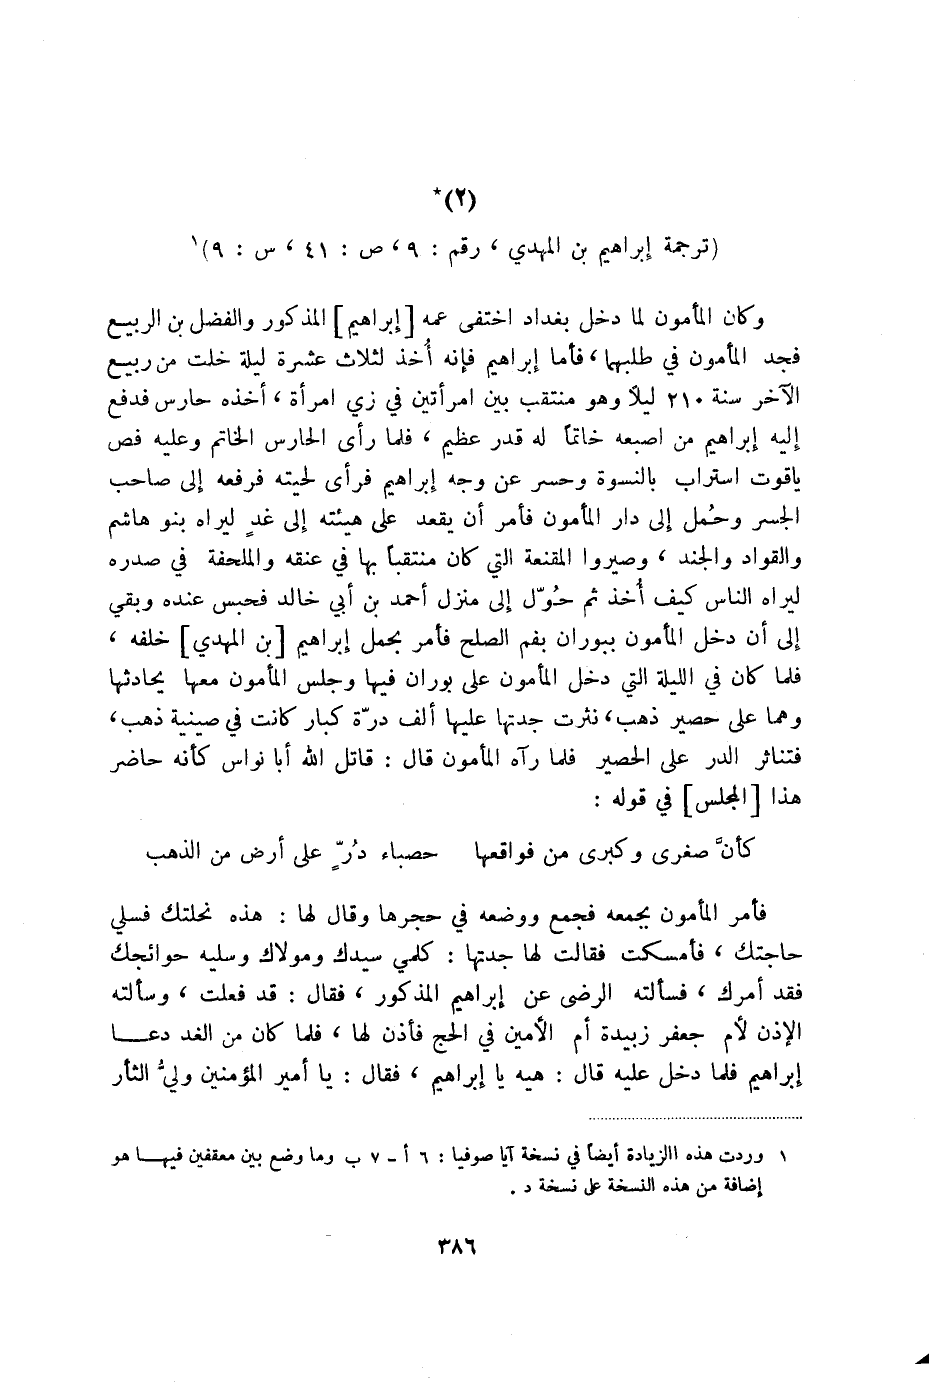 (٢)*
(ترجمة إبراهيم بن المهدي ، رقم : ٩ ، ص : ٤١ ، س : ٩)١
وكان المأمون لما دخل بغداد اختفى عمه [إبراهيم] المذكور والفضل بن الربيع
فجد المأمون في طلبهما ، فأما إبراهيم فإنه أُخذ لثلاث عشرة ليلة خلت من ربيع
الآخر سنة ٢١٠ ليلاً وهو منتقب بين امرأتين في زي امرأة ، أخذه حارس فدفع
إليه إبراهيم من اصبعه خاتماً له قدر عظيم ، فلما رأى الحارس الخاتم وعليه فص
ياقوت استراب بالنسوة وحسر عن وجه إبراهيم فرأى لحيته فرفعه إلى صاحب
الجسر وحُمل إلى دار المأمون فأمر أن يقعد على هيئته إلى غدٍ ليراه بنو هاشم
والقواد والجند ، وصيروا المقنعة التي كان منتقباً بها في عنقه والملحفة في صدره
ليراه الناس كيف أُخذ ثم حُوّل إلى منزل أحمد بن أبي خالد فحبس عنده وبقي
إلى أن دخل المأمون ببوران بفم الصلح فأمر بحمل إبراهيم [بن المهدي] خلفه ،
فلما كان في الليلة التي دخل المأمون على بوران فيها وجلس المأمون معها يحادثها
وهما على حصير ذهب، نثرت جدتها عليها ألف درّة كبار كانت في صينية ذهب،
فتناثر الدر على الحصير فلما رآه المأمون قال : قاتل الله أبا نواس كأنه حاضر
هذا [المجلس] في قوله :
كأنَّ صغرى وكبرى من فواقعها حصباء دُرّ على أرض من الذهب
فأمر المأمون بجمعه فجمع ووضعه في حجرها وقال لها : هذه نحلتك فسلي
حاجتك ، فأمسكت فقالت لها جدتها : كلمي سيدك ومولاك وسليه حوائجك
فقد أمرك ، فسألته الرضى عن إبراهيم المذكور ، فقال : قد فعلت ، وسألته
الإذن لأم جعفر زبيدة أم الأمين في الحج فأذن لها ، فلما كان من الغد دعــا
إبراهيم فلما دخل عليه قال : هيه يا إبراهيم ، فقال : يا أمير المؤمنين وليُّ الثأر
١ وردت هذه االزيادة أيضاً في نسخة آيا صوفيا : ٦ أ - ٧ ب وما وضع بين معقفين فيهــا هو
إضافة من هذه النسخة على نسخة د .
٣٨٦